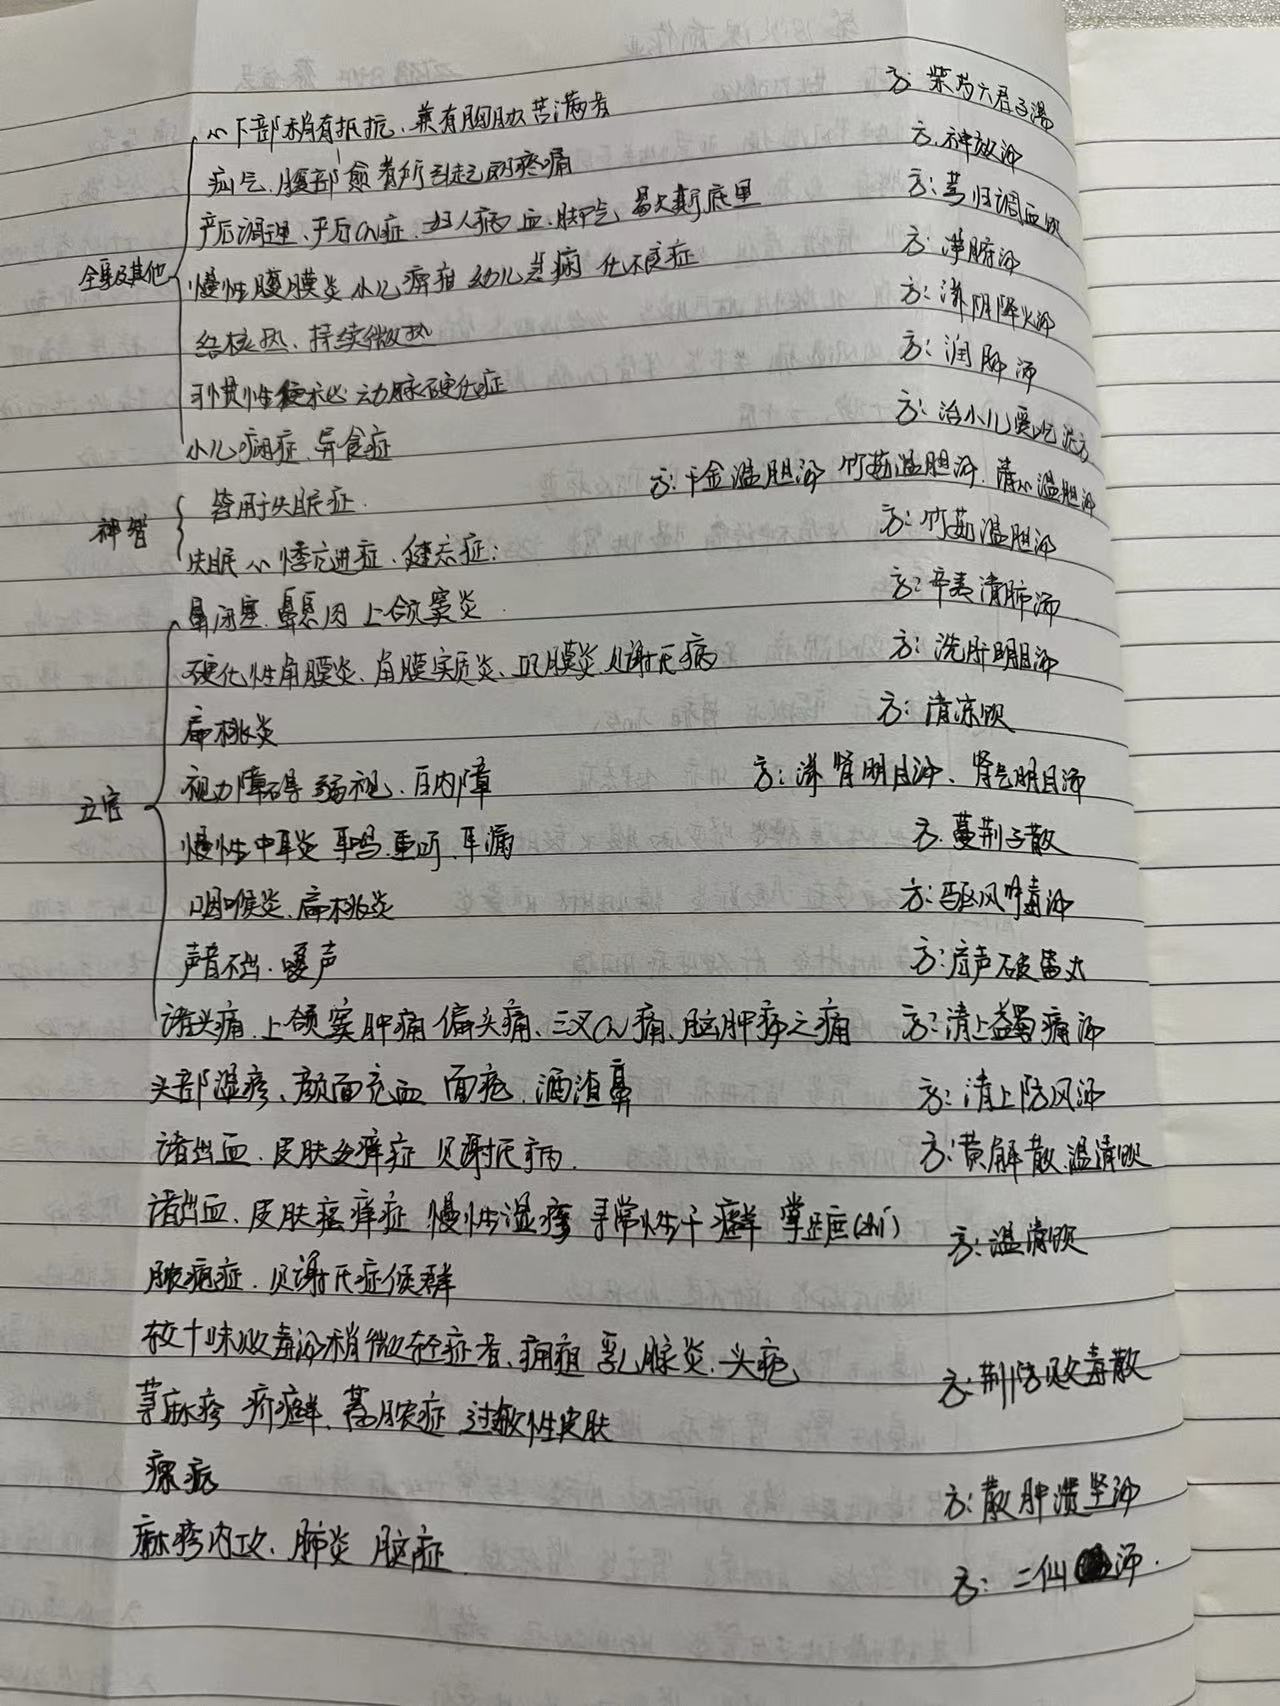 心下部稍有抵抗、兼有胸肋苦满者 方:柴芍六君子湯
疝气、腹部 所引起的疼痛 方:神效汤
产后调理、产后CN症、妇人病 血、脚气、歇斯底里 方:芎归调血饮
全身及其他
慢性腹膜炎 小儿痹疳 幼儿 化不良症 方:净腑汤
结核热、持续微热 方:滋阴降火汤
习惯性便秘 动脉硬化症 方:润肠汤
小儿 症、异食症 方:治小儿 方
神智
皆用于失眠症. 方:千金温胆汤 竹茹温胆汤、清心温胆汤
失眠 心悸亢进症、健忘症: 方:竹茹温胆汤
鼻闭塞 鼻息肉 上颌窦炎 方:辛夷清肺汤
硬化性角膜炎、角膜实质炎、巩膜炎、贝谢氏病 方:洗肝明目汤
扁桃炎 方:清凉饮
五官
视力障碍 弱视、白内障 方:滋肾明目汤、肾气明目汤
慢性中耳炎 耳鸣、重听、耳漏 方.蔓荆子散
咽喉炎、扁桃炎 方:驱风 毒汤
声音不出.嗄声 方:应声破笛丸
诸头痛、上颌窦肿痛 偏头痛、三叉CN痛、脑肿疡之痛 方:清上蠲痛汤
头部湿疹、颜面充血 面疱.酒渣鼻 方:清上防风汤
诸出血.皮肤 痒症 贝谢氏病. 方:黄解散.温清饮
诸出血、皮肤瘙痒症 慢性湿疹 寻常性干癣 掌 方:温清饮
脓疱症.贝谢氏症候群
较十味败毒汤稍微轻症者、痈疽 乳腺炎.头疮 方:荆防败毒散
荨麻疹 疥癣、蓄脓症 过敏性皮肤
瘰疬 方:散肿溃坚汤
麻疹内攻、肺炎 脑症 方:二仙 汤.